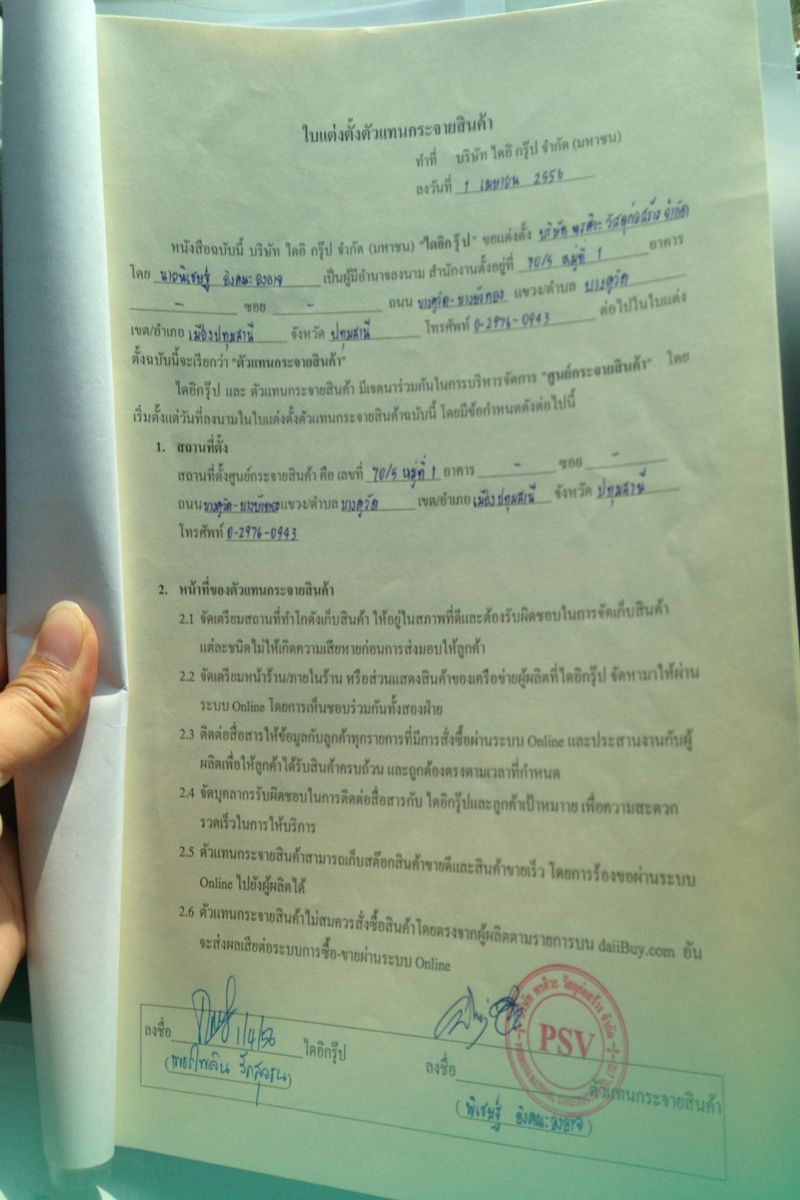 ใบแต่งตั้งตัวแทนกระจายสินค้า
ทำที่ บริษัท ไดอิ กรุ๊ป จำกัด (มหาชน)
ลงวันที่ 1 เมษายน 2556
หนังสือฉบับนี้ บริษัท ไดอิ กรุ๊ป จำกัด (มหาชน) "ไดอิกรุ๊ป" ขอแต่งตั้ง บริษัท พรศิวะ วัสดุก่อสร้าง จำกัด
โดย นายพิเชษฐ์ อังคะลงอาจ เป็นผู้มีอำนาจลงนาม สำนักงานตั้งอยู่ที่ 70/5 หมู่ที่ 1 อาคาร
- ซอย - ถนน บางคูวัด-บางบัวทอง แขวง/ตำบล บางคูวัด
เขต/อำเภอ เมืองปทุมธานี จังหวัด ปทุมธานี โทรศัพท์ 0-2976-0943 ต่อไปในใบแต่ง
ตั้งฉบับนี้จะเรียกว่า "ตัวแทนกระจายสินค้า"
ไดอิกรุ๊ป และ ตัวแทนกระจายสินค้า มีเจตนาร่วมกันในการบริหารจัดการ "ศูนย์กระจายสินค้า" โดย
เริ่มตั้งแต่วันที่ลงนามในใบแต่งตั้งตัวแทนกระจายสินค้าฉบับนี้ โดยมีข้อกำหนดดังต่อไปนี้
1. สถานที่ตั้ง
สถานที่ตั้งศูนย์กระจายสินค้า คือ เลขที่ 70/5 หมู่ที่ 1 อาคาร - ซอย -
ถนน บางคูวัด-บางบัวทอง แขวง/ตำบล บางคูวัด เขต/อำเภอ เมืองปทุมธานี จังหวัด ปทุมธานี
โทรศัพท์ 0-2976-0943
2. หน้าที่ของตัวแทนกระจายสินค้า
2.1 จัดเตรียมสถานที่ทำโกดังเก็บสินค้า ให้อยู่ในสภาพที่ดีและต้องรับผิดชอบในการจัดเก็บสินค้า
แต่ละชนิดไม่ให้เกิดความเสียหายก่อนการส่งมอบให้ลูกค้า
2.2 จัดเตรียมหน้าร้าน/ภายในร้าน หรือส่วนแสดงสินค้าของเครือข่ายผู้ผลิตที่ไดอิกรุ๊ป จัดหามาให้ผ่าน
ระบบ Online โดยการเห็นชอบร่วมกันทั้งสองฝ่าย
2.3 ติดต่อสื่อสารให้ข้อมูลกับลูกค้าทุกรายการที่มีการสั่งซื้อผ่านระบบ Online และประสานงานกับผู้
ผลิตเพื่อให้ลูกค้าได้รับสินค้าครบถ้วน และถูกต้องตรงตามเวลาที่กำหนด
2.4 จัดบุคลากรรับผิดชอบในการติดต่อสื่อสารกับ ไดอิกรุ๊ปและลูกค้าเป้าหมาาย เพื่อความสะดวก
รวดเร็วในการให้บริการ
2.5 ตัวแทนกระจายสินค้าสามารถเก็บสต๊อกสินค้าขายดีและสินค้าขายเร็ว โดยการร้องขอผ่านระบบ
Online ไปยังผู้ผลิตได้
2.6 ตัวแทนกระจายสินค้าไม่สมควรสั่งซื้อสินค้าโดยตรงจากผู้ผลิตตามรายการบน daiiBuy.com อัน
จะส่งผลเสียต่อระบบการซื้อ-ขายผ่านระบบ Online
ลงชื่อ 1/4/56 ไดอิกรุ๊ป
ลงชื่อ ตัวแทนกระจายสินค้า
PSV